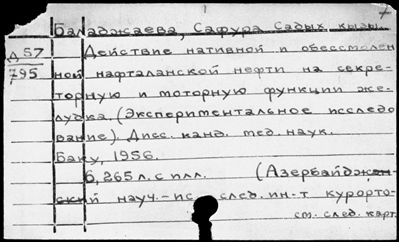 Баладжаева, Сафура Садых кызы.
Д 57
795
Действие нативной и обессмолен
ной нафталанской нефти на секре-
торную и моторную функции же-
лудка. (Экспериментальное исследо
вание). Дисс. канд. мед. наук.
Баку, 1956.
6, 265 л. с илл. (Азербайджан-
ский науч.-ис. след. ин-т курорто-
см. след. карт.